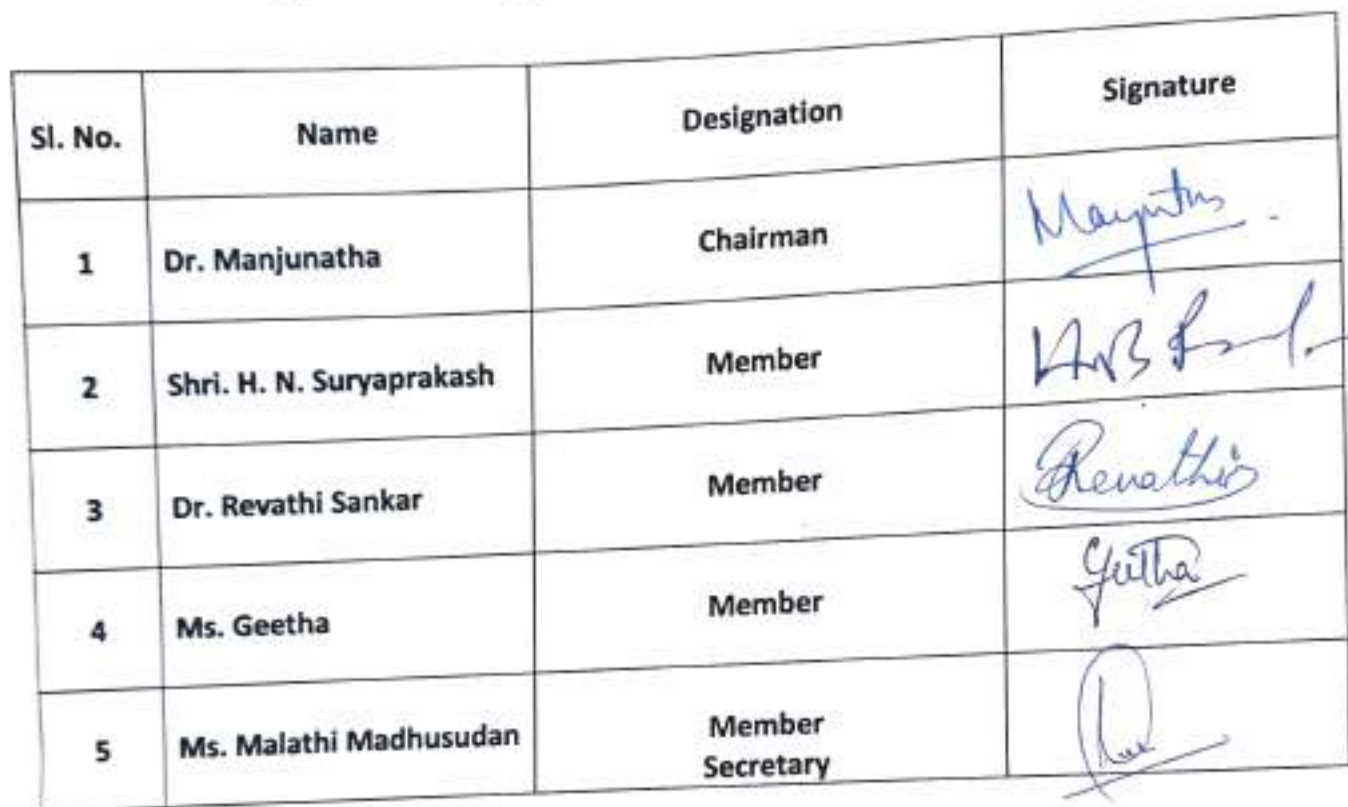 Sl. No. Name Designation Signature
1 Dr. Manjunatha Chairman
2 Shri. H. N. Suryaprakash Member
3 Dr. Revathi Sankar Member Revathi
4 Ms. Geetha Member Geetha
5 Ms. Malathi Madhusudan Member
Secretary